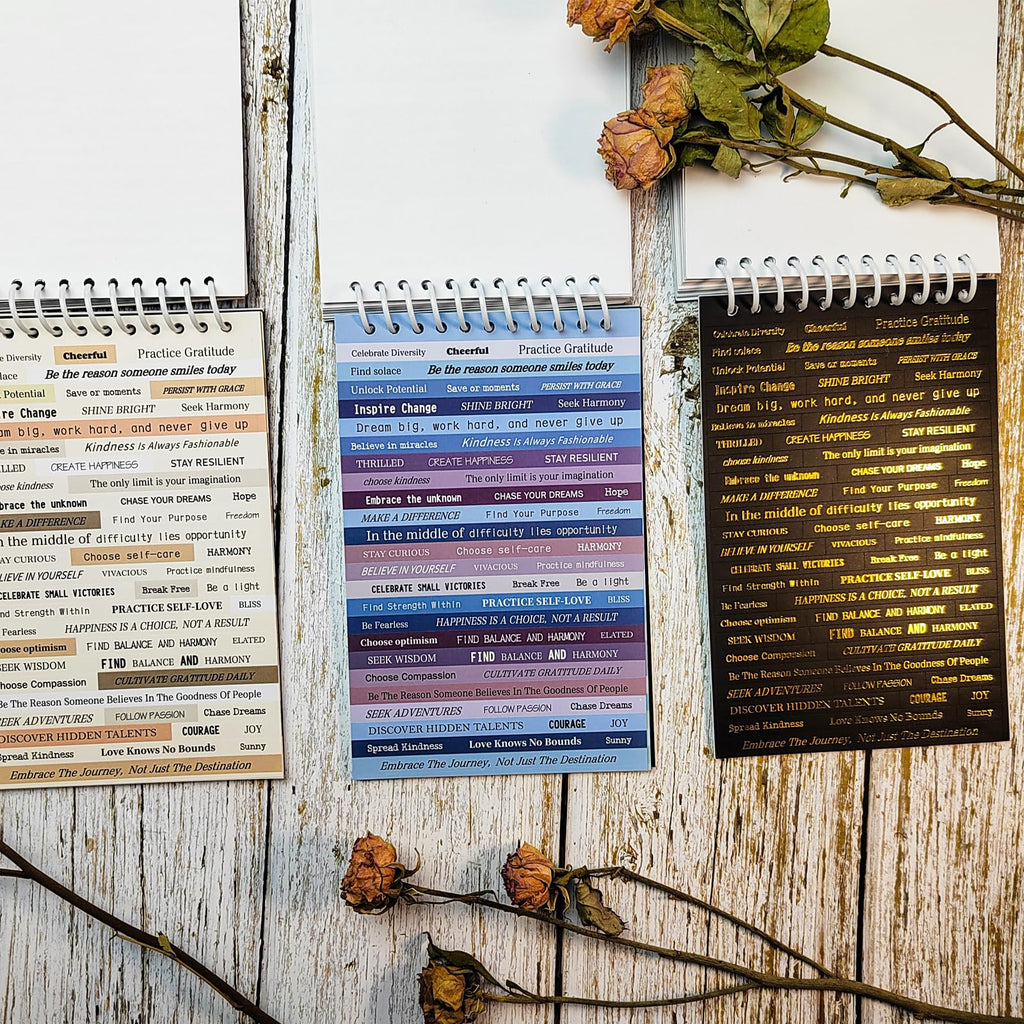 Celebrate Diversity Cheerful Practice Gratitude
Find solace Be the reason someone smiles today
Unlock Potential Save or moments PERSIST WITH GRACE
Inspire Change SHINE BRIGHT Seek Harmony
Dream big, work hard, and never give up
Believe in miracles Kindness Is Always Fashionable
THRILLED CREATE HAPPINESS STAY RESILIENT
choose kindness The only limit is your imagination
Embrace the unknown CHASE YOUR DREAMS Hope
MAKE A DIFFERENCE Find Your Purpose Freedom
In the middle of difficulty lies opportunity
STAY CURIOUS Choose self-care HARMONY
BELIEVE IN YOURSELF VIVACIOUS Practice mindfulness
CELEBRATE SMALL VICTORIES Break Free Be a light
Find Strength Within PRACTICE SELF-LOVE BLISS
Be Fearless HAPPINESS IS A CHOICE, NOT A RESULT
Choose optimism FIND BALANCE AND HARMONY ELATED
SEEK WISDOM FIND BALANCE AND HARMONY
Choose Compassion CULTIVATE GRATITUDE DAILY
Be The Reason Someone Believes In The Goodness Of People
SEEK ADVENTURES FOLLOW PASSION Chase Dreams
DISCOVER HIDDEN TALENTS COURAGE JOY
Spread Kindness Love Knows No Bounds Sunny
Embrace The Journey, Not Just The Destination
Diversity Cheerful Practice Gratitude
olace Be the reason someone smiles today
Potential Save or moments PERSIST WITH GRACE
re Change SHINE BRIGHT Seek Harmony
am big, work hard, and never give up
e in miracles Kindness Is Always Fashionable
LLED CREATE HAPPINESS STAY RESILIENT
ose kindness The only limit is your imagination
brace the unknown CHASE YOUR DREAMS Hope
KE A DIFFERENCE Find Your Purpose Freedom
n the middle of difficulty lies opportunity
AY CURIOUS Choose self-care HARMONY
LIEVE IN YOURSELF VIVACIOUS Practice mindfulness
CELEBRATE SMALL VICTORIES Break Free Be a light
nd Strength Within PRACTICE SELF-LOVE BLISS
e Fearless HAPPINESS IS A CHOICE, NOT A RESULT
oose optimism FIND BALANCE AND HARMONY ELATED
SEEK WISDOM FIND BALANCE AND HARMONY
hoose Compassion CULTIVATE GRATITUDE DAILY
Be The Reason Someone Believes In The Goodness Of People
SEEK ADVENTURES FOLLOW PASSION Chase Dreams
DISCOVER HIDDEN TALENTS COURAGE JOY
Spread Kindness Love Knows No Bounds Sunny
Embrace The Journey, Not Just The Destination
Celebrate Diversity Cheerful Practice Gratitude
Find solace Be the reason someone smiles today
Unlock Potential Save or moments PERSIST WITH GRACE
Inspire Change SHINE BRIGHT Seek Harmony
Dream big, work hard, and never give up
Believe in miracles Kindness Is Always Fashionable
THRILLED CREATE HAPPINESS STAY RESILIENT
choose kindness The only limit is your imagination
Embrace the unknown CHASE YOUR DREAMS Hope
MAKE A DIFFERENCE Find Your Purpose Freedom
In the middle of difficulty lies opportunity
STAY CURIOUS Choose self-care HARMONY
BELIEVE IN YOURSELF VIVACIOUS Practice mindfulness
CELEBRATE SMALL VICTORIES Break Free Be a light
Find Strength Within PRACTICE SELF-LOVE BLISS
Be Fearless HAPPINESS IS A CHOICE, NOT A RESULT
Choose optimism FIND BALANCE AND HARMONY ELATED
SEEK WISDOM FIND BALANCE AND HARMONY
Choose Compassion CULTIVATE GRATITUDE DAILY
Be The Reason Someone Believes In The Goodness Of People
SEEK ADVENTURES FOLLOW PASSION Chase Dreams
DISCOVER HIDDEN TALENTS COURAGE JOY
Spread Kindness Love Knows No Bounds Sunny
Embrace The Journey, Not Just The Destination